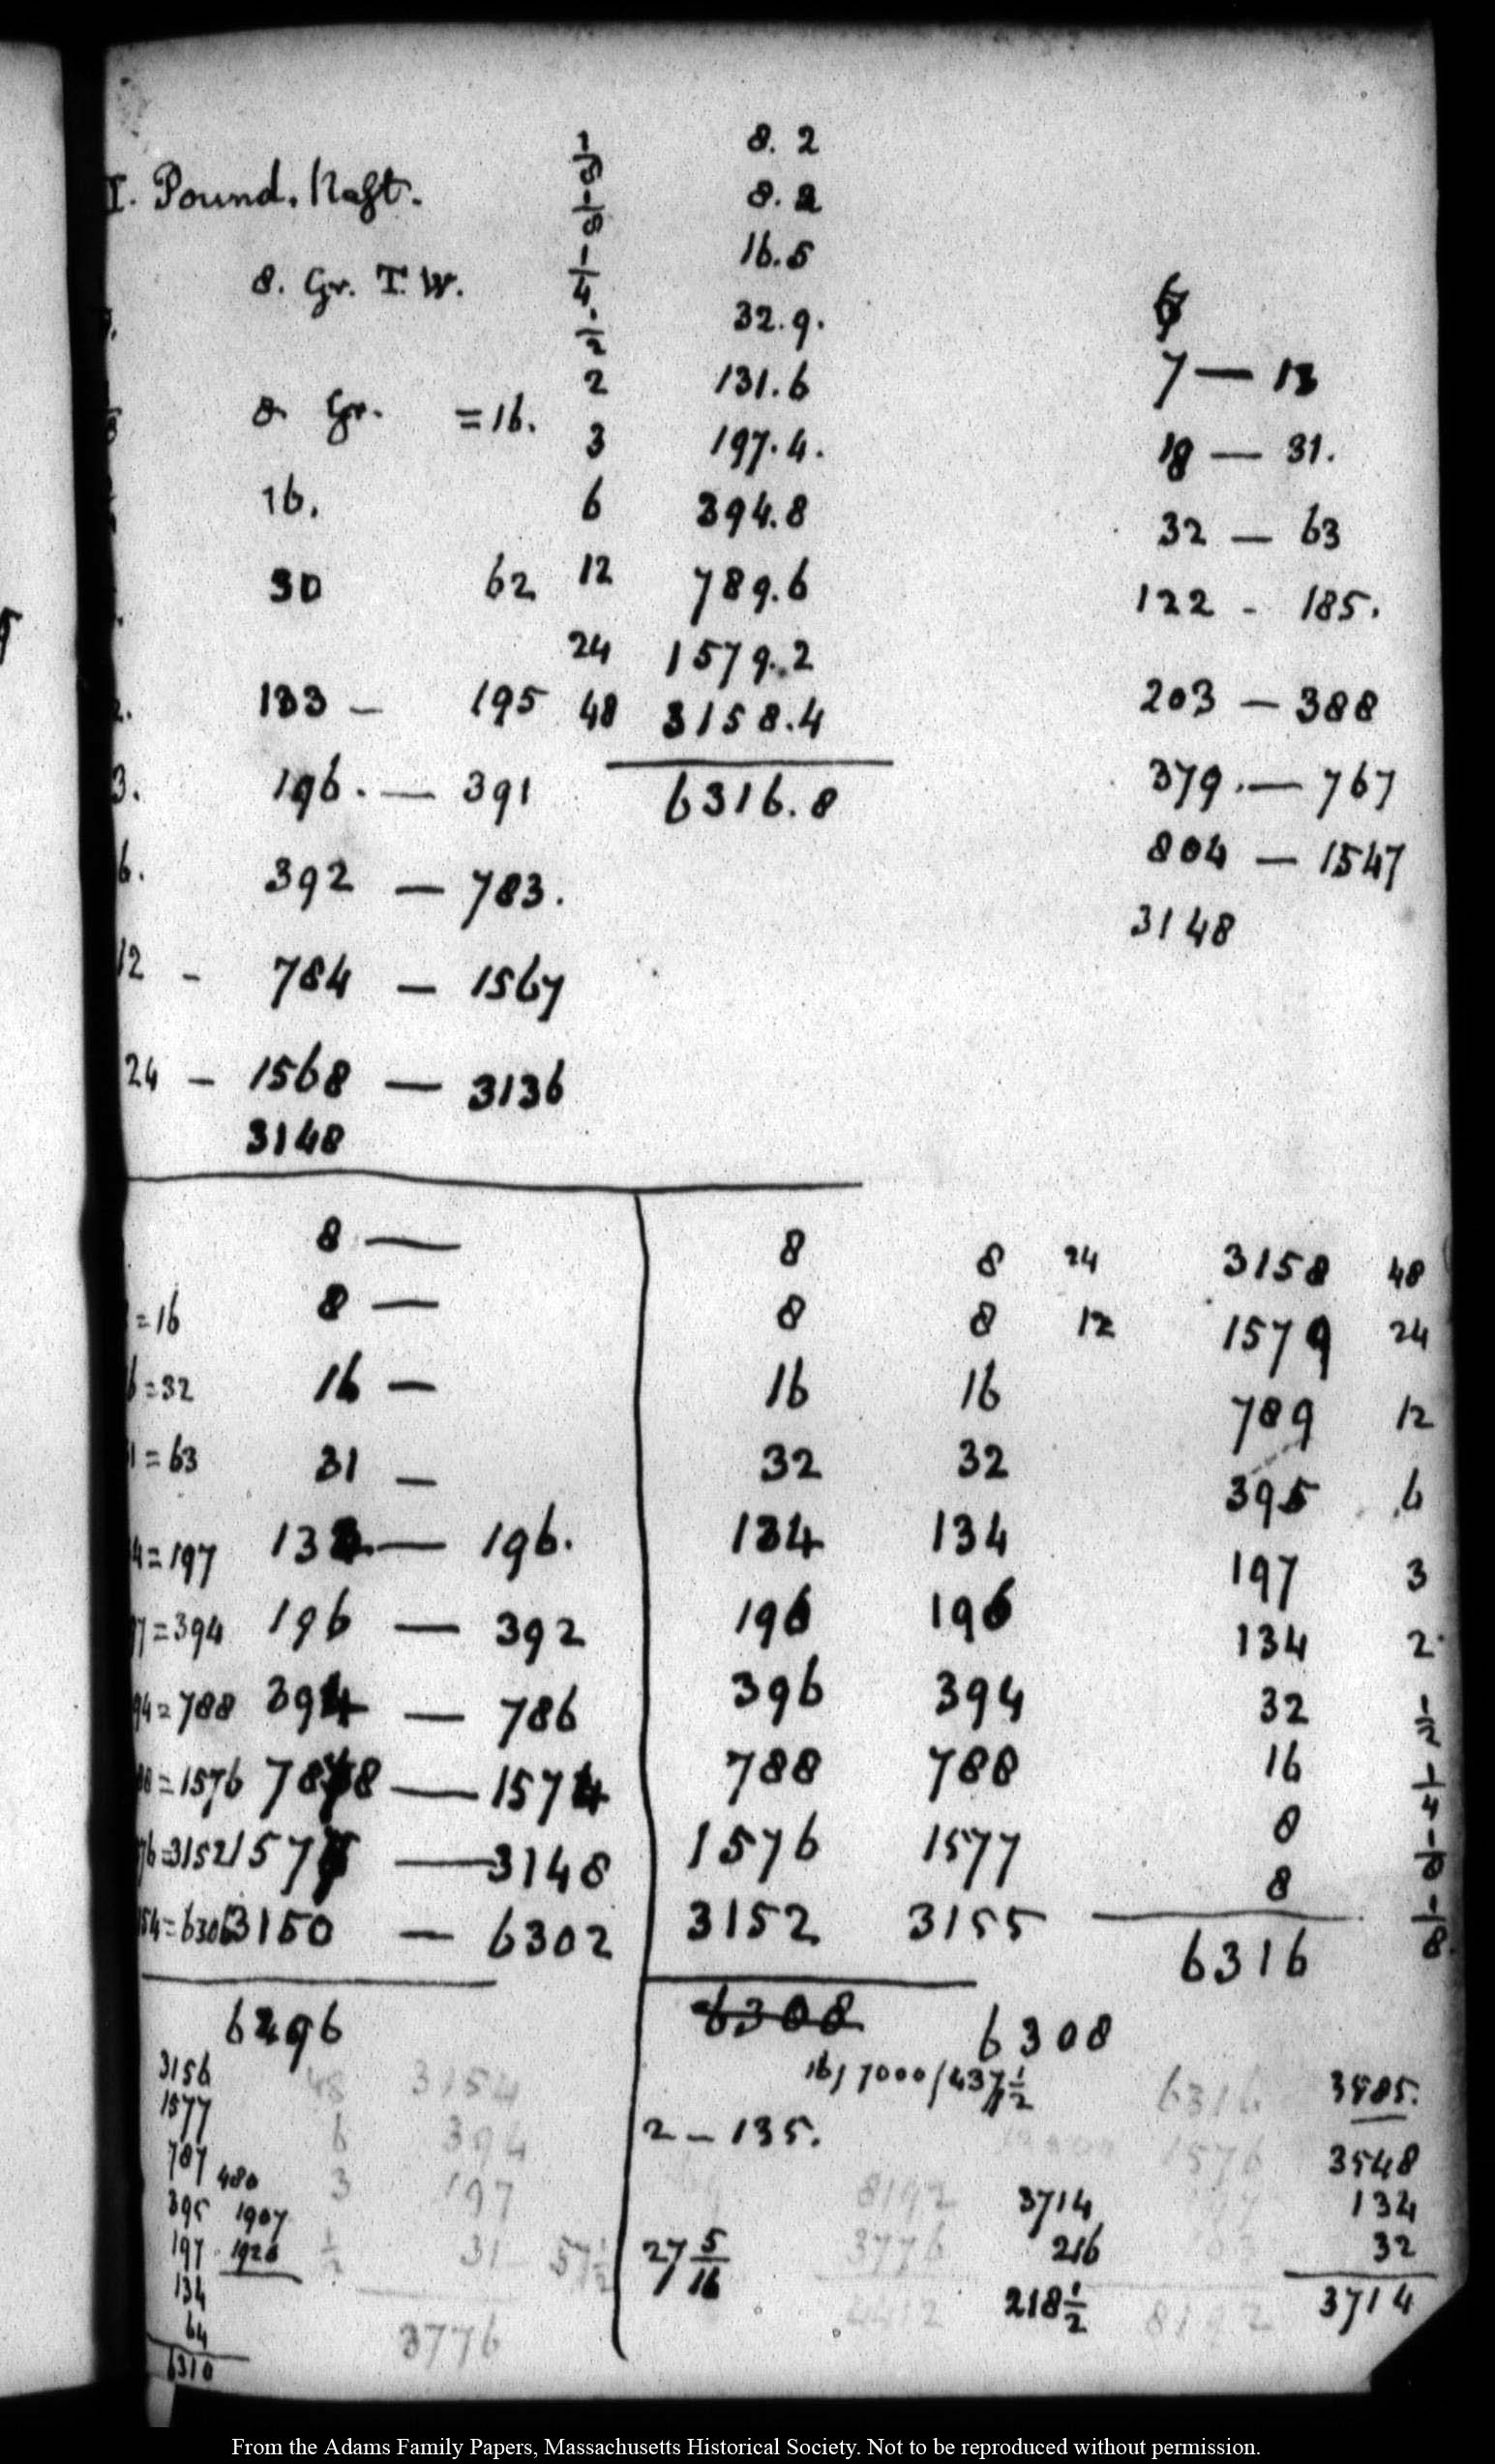 I. Pound. Naft.
8. Gr. T. W.
8 Gr. =16.
16.
30 62
133 — 195
3. 196. — 391
6. 392 — 783.
12 - 784 — 1567
24 - 1568 — 3136
3148
1/8 8. 2
1/8 8. 2
1/4 16.5
1/2 32.9.
2 131.6
3 197.4.
6 394.8
12 789.6
24 1579.2
48 3158.4
6316.8
7 — 13
18 — 31.
32 — 63
122 - 185.
203 — 388
379. — 767
804 — 1547
3148
8 —
=16 8 —
=32 16 —
=63 31 —
=197 13 — 196.
=394 196 — 392
=788 394 — 786
=1576 — 1574
=3152 157 — 3148
=6306 3150 — 6302
6296
3156
1577
787
480
395 1907
197 1920
134
64
6310
48 3154
6 394
3 197
1/2 31
3776
8 8 24
8 8 12
16 16
32 32
134 134
196 196
396 394
788 788
1576 1577
3152 3155
6308 6308
3158 48
1579 24
789 12
395 6
197 3
134 2
32 1/2
16 1/4
8 1/8
8 1/8
6316
16/7000/437 1/2
2 — 135.
27 5/16
8192
3776
4412
3714
216
218 1/2
6316
1576
8192
3585.
3548
134
32
3714
From the Adams Family Papers, Massachusetts Historical Society. Not to be reproduced without permission.